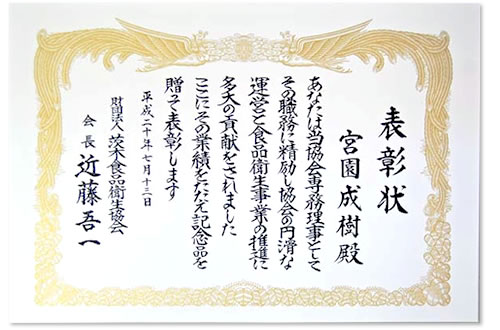 表彰状
宮園成樹殿
あなたは当協会専務理事として
その職務に精励し協会の円滑な
運営と食品衛生事業の推進に
多大の貢献をされました
ここにその業績をたたえ記念品を
贈って表彰します
平成二十年七月十三日
財団法人 茨木食品衛生協会
会長 近藤吾一